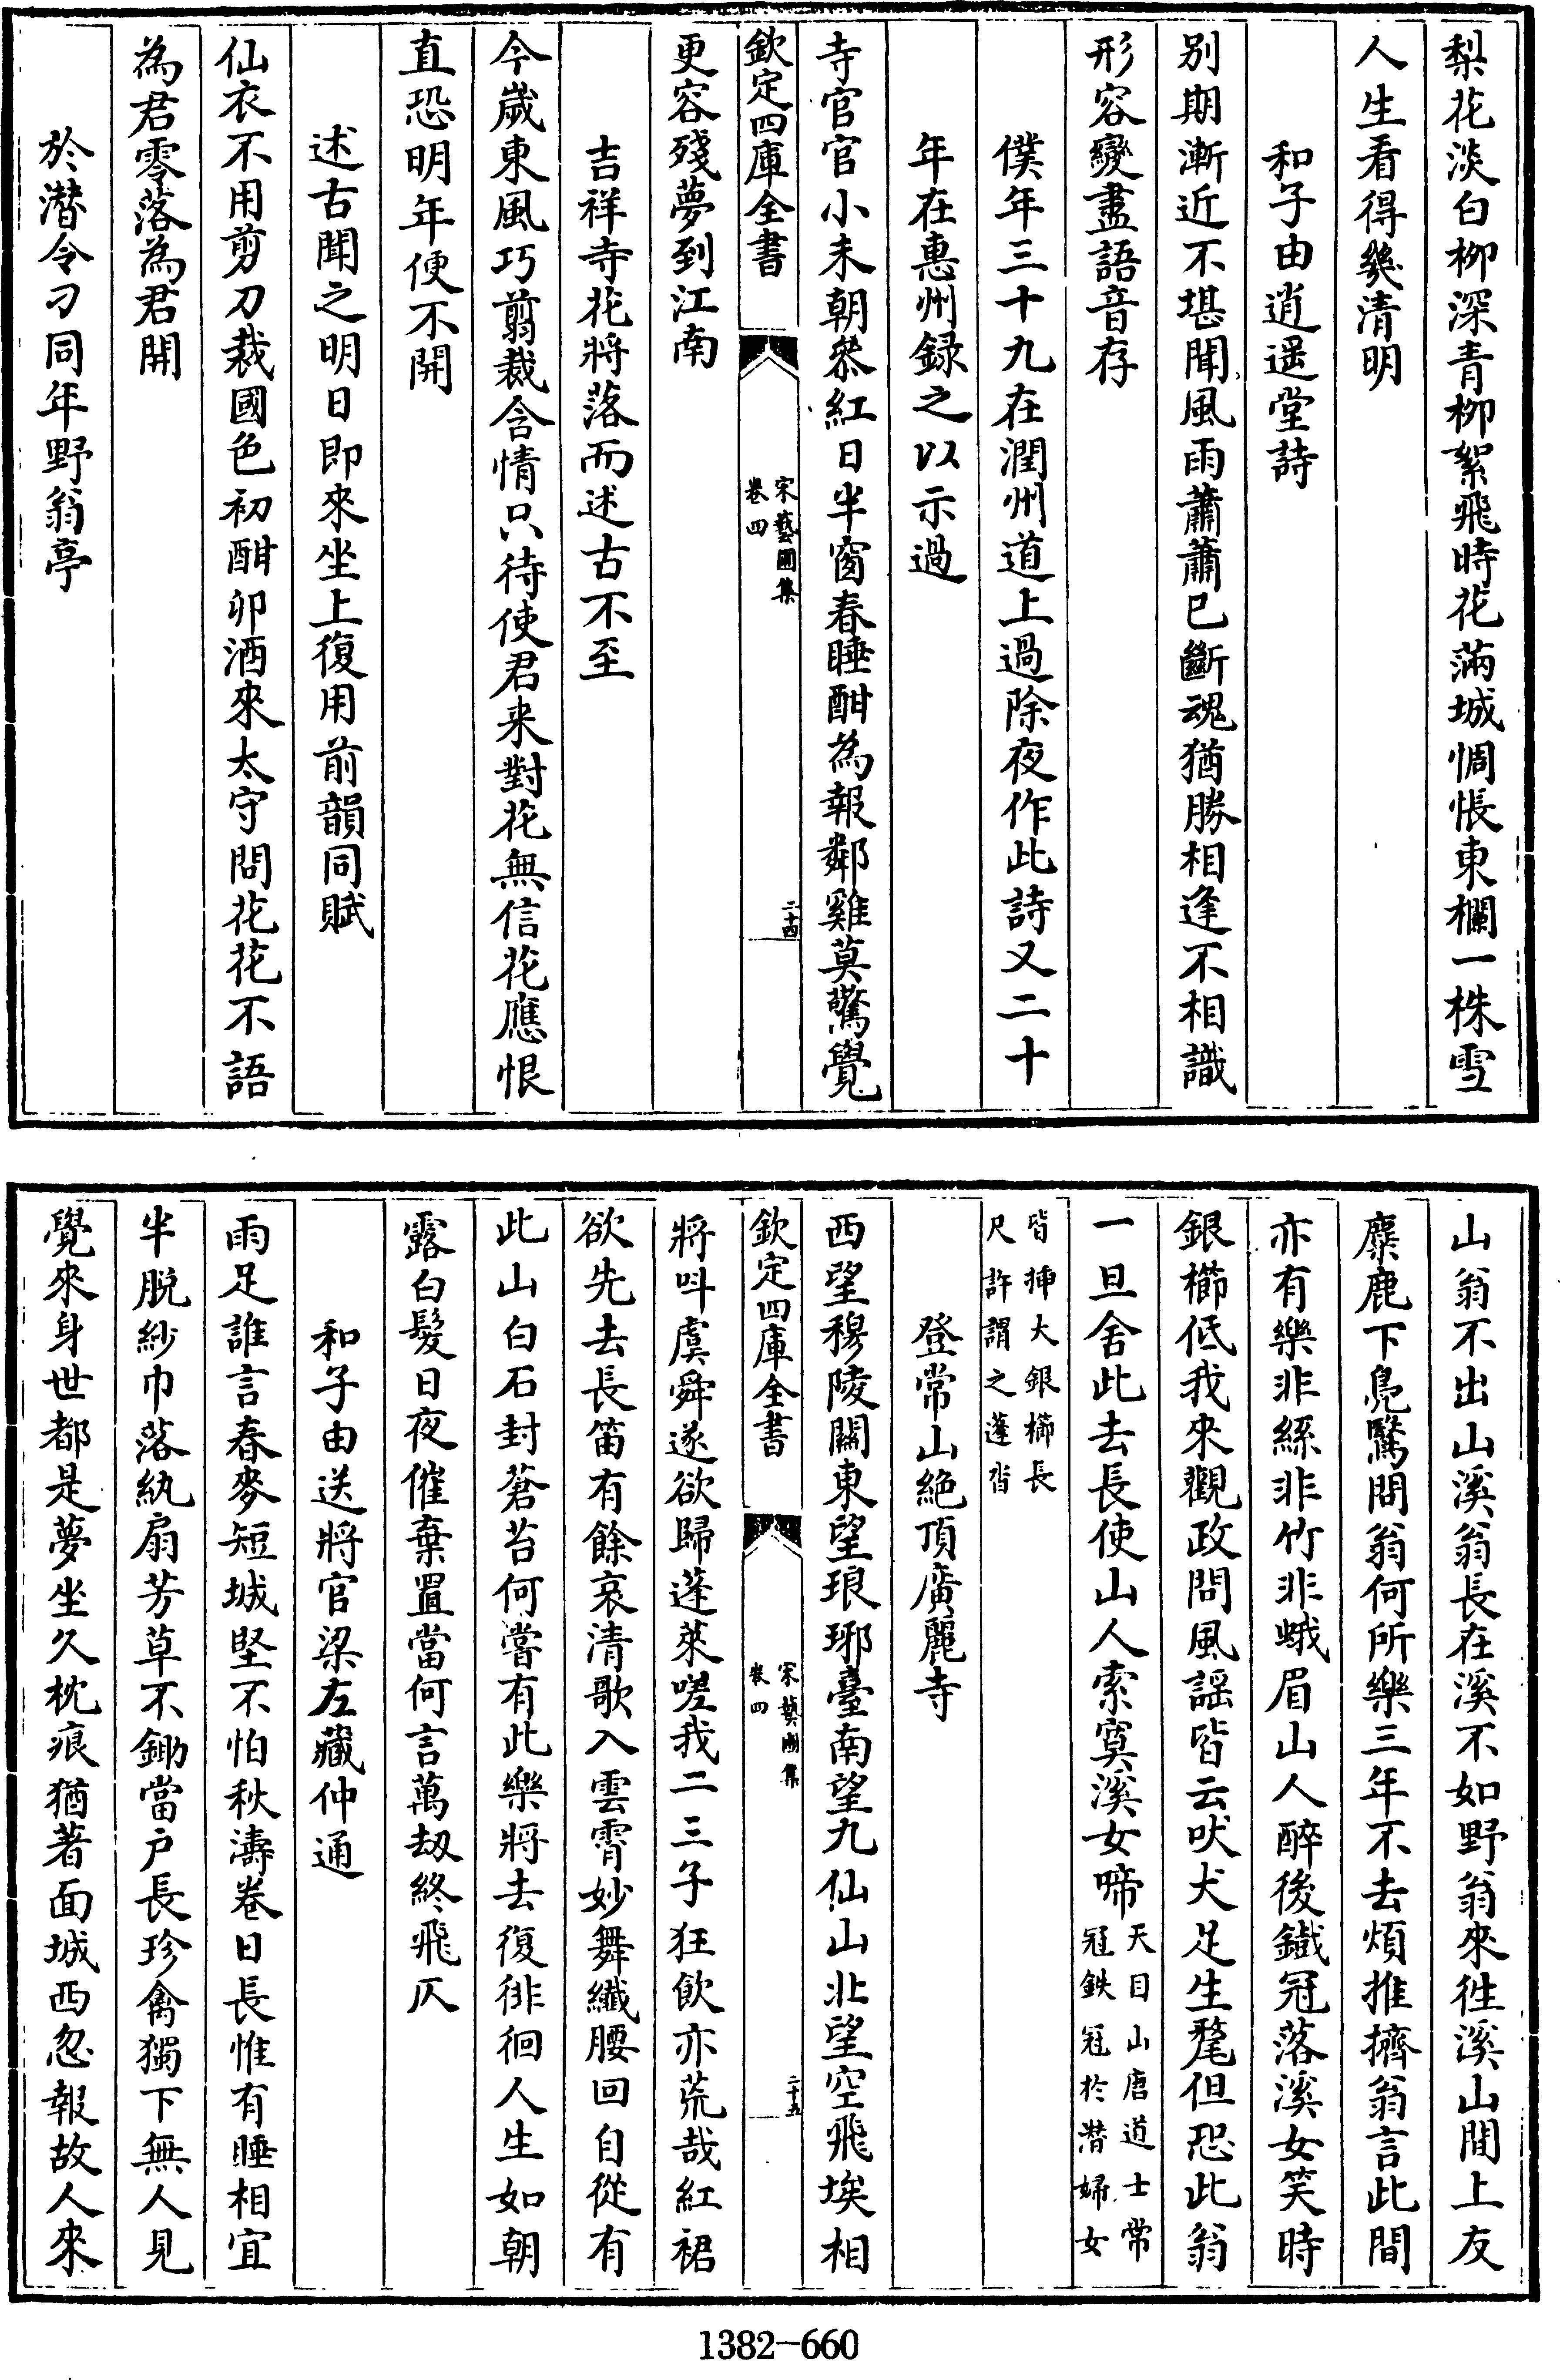 梨花淡白栁深青栁絮飛時花滿城惆悵東欄一株雪
人生看得幾清明
和子由逍遥堂詩
别期漸近不堪聞風雨蕭蕭已斷魂猶勝相逢不相識
形容變盡語音存
僕年三十九在潤州道上過除夜作此詩又二十
年在惠州録之以示過
寺官官小未朝叅紅日半窗春睡酣為報鄰雞莫驚覺
欽定四庫全書
宋藝圃集
卷四
二十四
更容殘夢到江南
吉祥寺花將落而述古不至
今嵗東風巧翦裁含情只待使君来對花無信花應恨
直恐明年便不開
述古聞之明日即來坐上復用前韻同賦
仙衣不用剪刀裁國色初酣卯酒來太守問花花不語
為君零落為君開
於潛令刁同年野翁亭
山翁不出山溪翁長在溪不如野翁來徃溪山間上友
麋鹿下鳧鷖問翁何所樂三年不去煩推擠翁言此間
亦有樂非絲非竹非蛾眉山人醉後鐵冠落溪女笑時
銀櫛低我來觀政問風謡皆云吠犬足生氂但恐此翁
一旦舍此去長使山人索寞溪女啼
天目山唐道士常
冠鉄冠於潛婦女
皆揷大銀櫛長
尺許謂之蓬沓
登常山絶頂廣麗寺
西望穆陵關東望琅琊臺南望九仙山北望空飛埃相
欽定四庫全書
宋藝圃集
卷四
二十五
將呌虞舜遂欲歸蓬萊嗟我二三子狂飲亦荒哉紅裙
欲先去長笛有餘哀清歌入雲霄妙舞纖腰回自從有
此山白石封蒼苔何嘗有此樂將去復徘徊人生如朝
露白髮日夜催棄置當何言萬刼終飛仄
和子由送將官梁左藏仲通
雨足誰言春麥短城堅不怕秋濤卷日長惟有睡相宜
半脱紗巾落紈扇芳草不鋤當户長珍禽獨下無人見
覺來身世都是夢坐久枕痕猶著面城西忽報故人來
1382-660